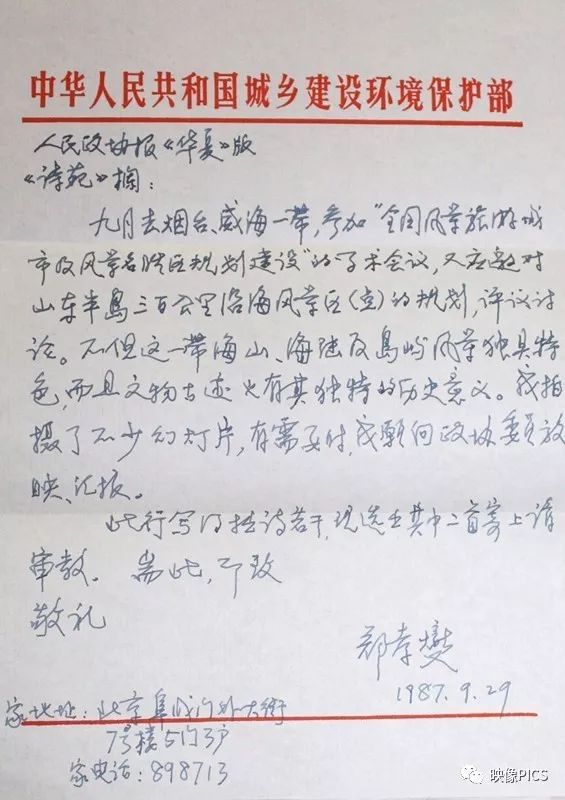 中华人民共和国城乡建设环境保护部
人民政协报《华夏》版
《诗苑》栏：
九月去烟台、威海一带，参加“全国风景旅游城
市及风景名胜区规划建设”的学术会议，又应邀对
山东半岛三百公里沿海风景区(点)的规划，评议讨
论。不但这一带海山、海陆及岛屿风景独具特
色，而且文物古迹也有其独特的历史意义。我拍
摄了不少幻灯片，有需要时，我愿向政协委员放
映、汇报。
此行写得拙诗若干，现选出其中二首寄上请
审教。耑此，即致
敬礼
郑孝燮
1987.9.29
家地址：北京阜成门外大街
7号楼5门3户
家电话：898713
映像PICS